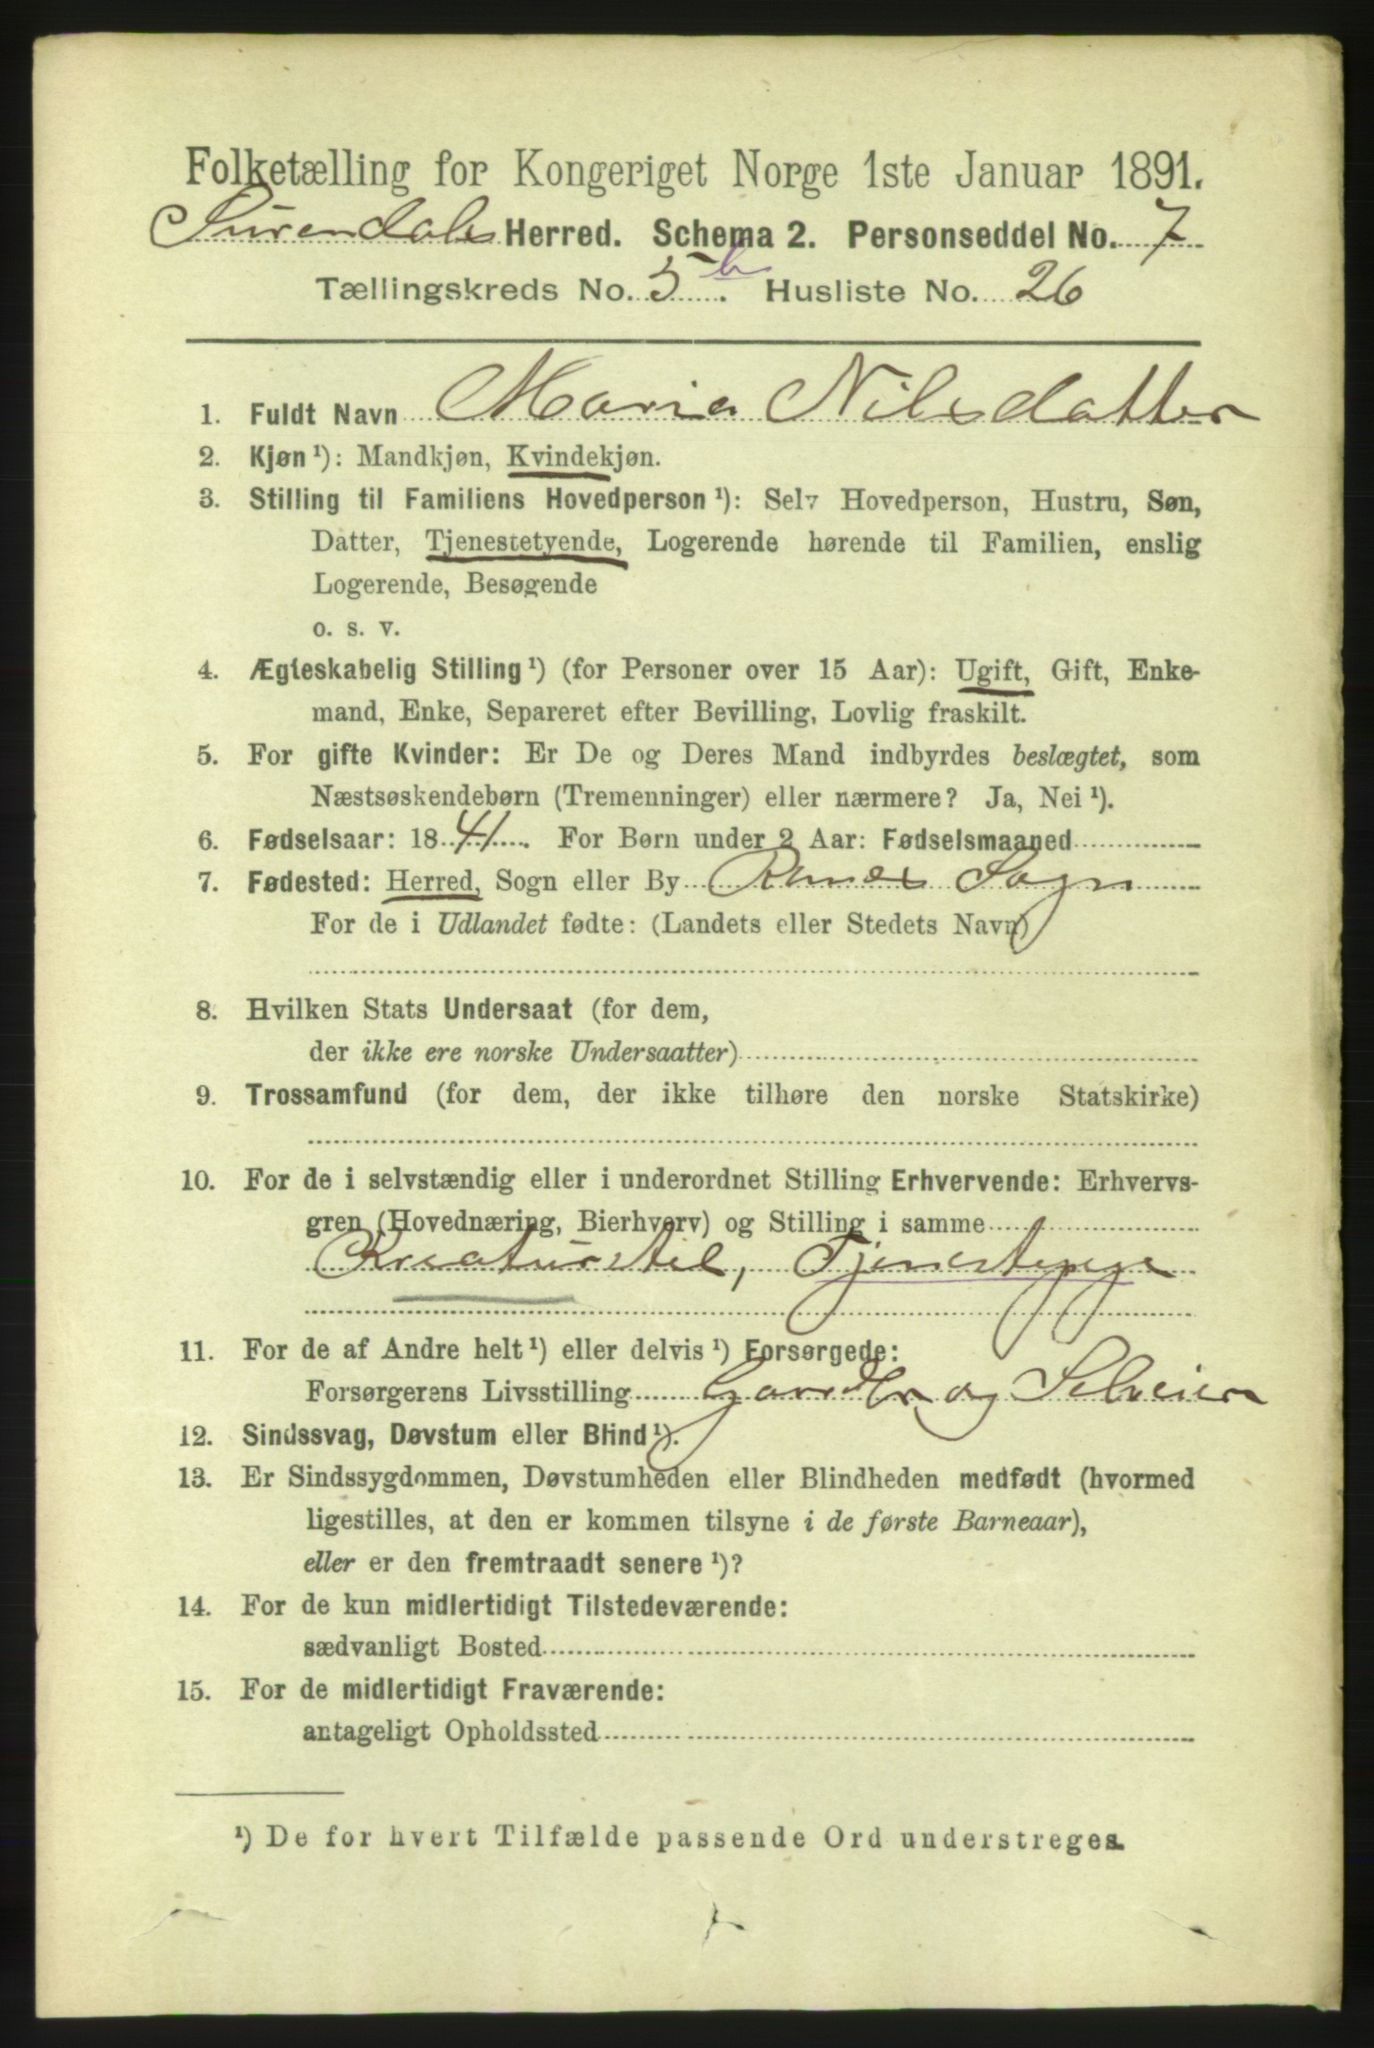 Folketælling for Kongeriget Norge 1ste Januar 1891.
Surendals Herred. Schema 2. Personseddel No. 7
Tællingskreds No. 5 b. Husliste No. 26
1. Fuldt Navn Maria Nilsdatter
2. Kjøn ¹): Mandkjøn, Kvindekjøn.
3. Stilling til Familiens Hovedperson ¹): Selv Hovedperson, Hustru, Søn,
Datter, Tjenestetyende, Logerende hørende til Familien, enslig
Logerende, Besøgende
o. s. v.
4. Ægteskabelig Stilling ¹) (for Personer over 15 Aar): Ugift, Gift, Enke-
mand, Enke, Separeret efter Bevilling, Lovlig fraskilt.
5. For gifte Kvinder: Er De og Deres Mand indbyrdes beslægtet, som
Næstsøskendebørn (Tremenninger) eller nærmere? Ja, Nei ¹).
6. Fødselsaar: 1841. For Børn under 2 Aar: Fødselsmaaned
7. Fødested: Herred, Sogn eller By Ranes Sogn
For de i Udlandet fødte: (Landets eller Stedets Navn)
8. Hvilken Stats Undersaat (for dem,
der ikke ere norske Undersaatter)
9. Trossamfund (for dem, der ikke tilhøre den norske Statskirke)
10. For de i selvstændig eller i underordnet Stilling Erhvervende: Erhvervs-
gren (Hovednæring, Bierhverv) og Stilling i samme
Kreaturstel, Tjenestepige
11. For de af Andre helt ¹) eller delvis ¹) Forsørgede:
Forsørgerens Livsstilling Gaardbr. og Selveier
12. Sindssvag, Døvstum eller Blind ¹).
13. Er Sindssygdommen, Døvstumheden eller Blindheden medfødt (hvormed
ligestilles, at den er kommen tilsyne i de første Barneaar),
eller er den fremtraadt senere ¹)?
14. For de kun midlertidigt Tilstedeværende:
sædvanligt Bosted
15. For de midlertidigt Fraværende:
antageligt Opholdssted
¹) De for hvert Tilfælde passende Ord understreges.